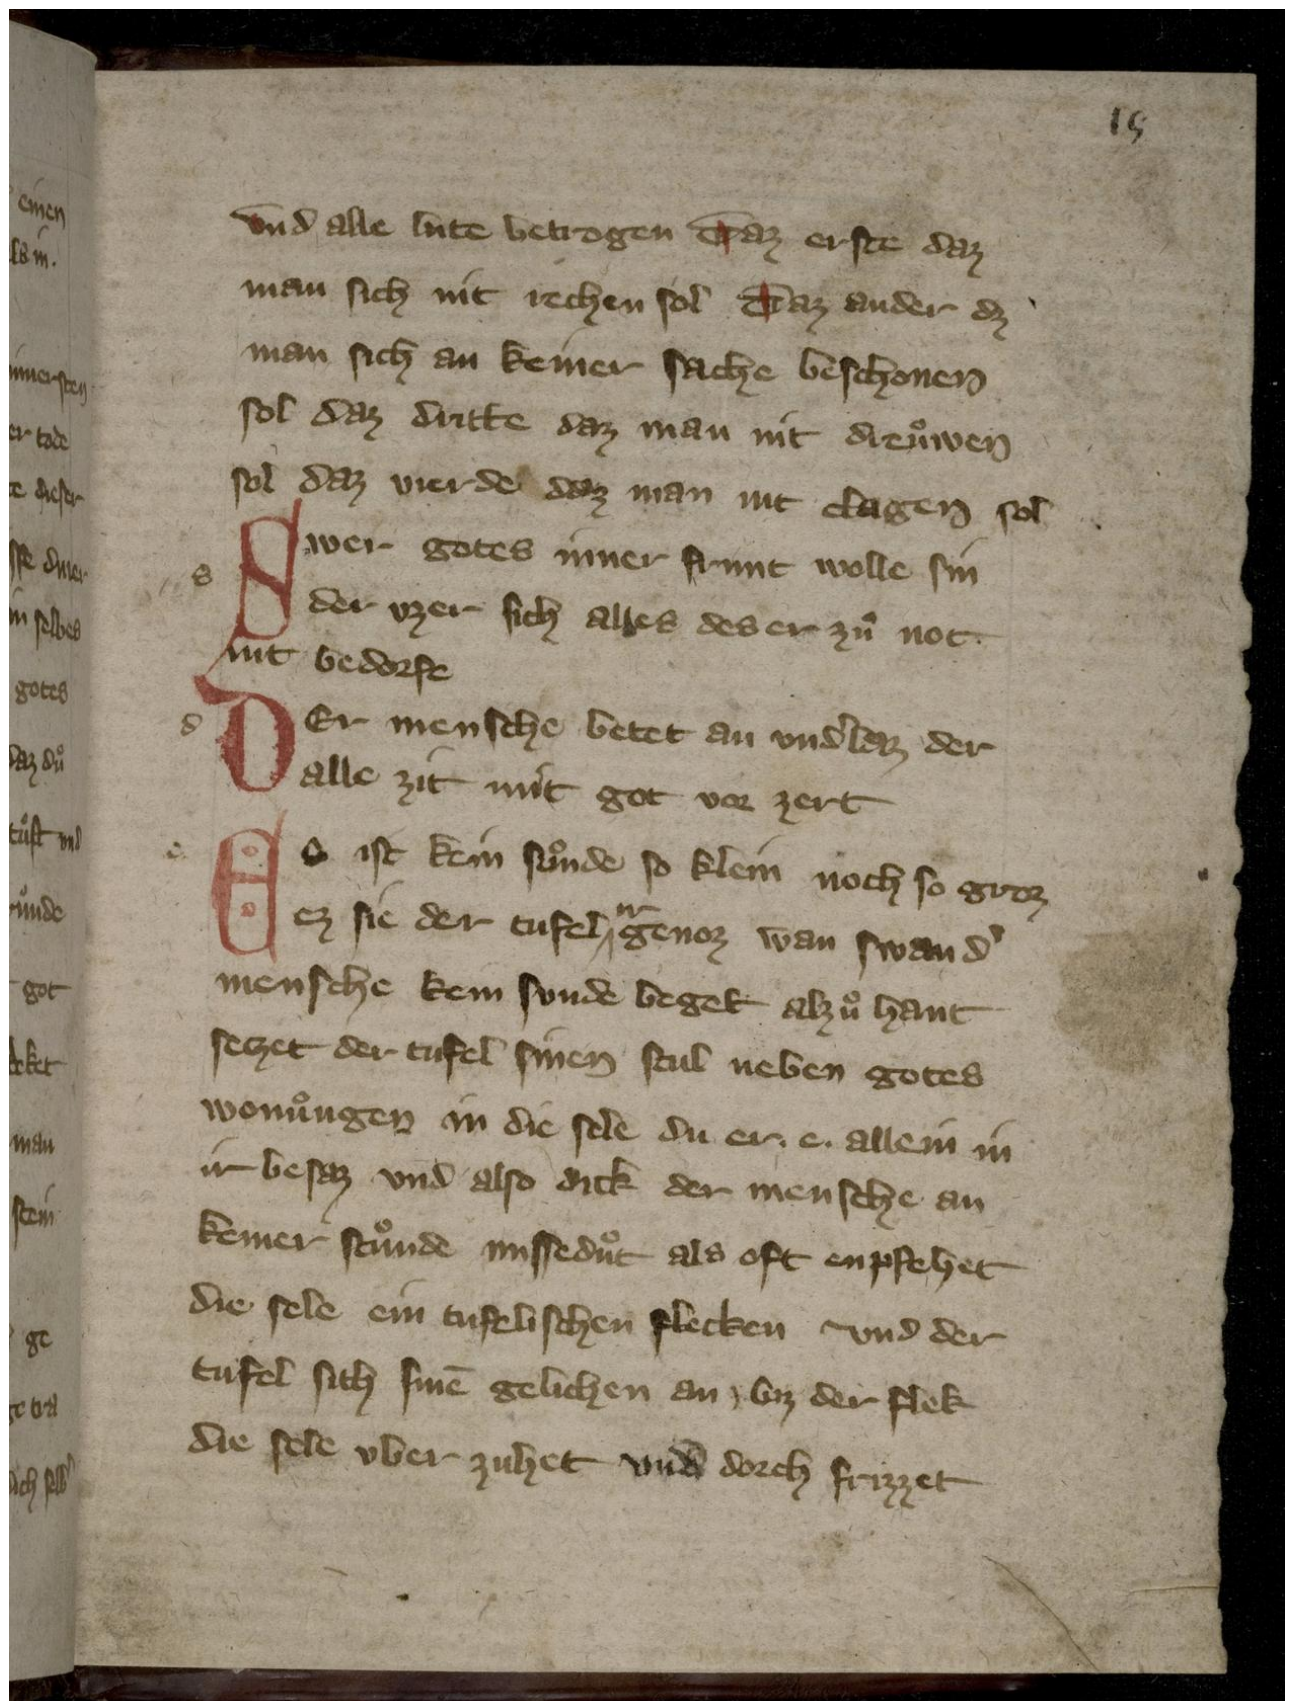 15
vnd alle lute betrogen Daz erste daz
man sich nit rechen sol Daz ander dz
man sich an keiner sache beschonen
sol daz dritte daz man nit dreuͦwen
sol daz vierde daz man nit clagen sol
s Swer gotes inner frunt wolle sin
der vzer sich alles des er zuͦ not
nit bedorfe
d DEr mensche betet an vnd'laz der
alle zit mit got vor zert
e Es ist kein suͦnde so klein noch so groz
ez sie der tufel ir genoz wan swan d'
mensche kein sunde beget alzuͦ hant
setzet der tufel sinen stul neben gotes
wonuͦngen in die sele du er. e. allein in
ir besaz vnd also dick der mensche an
keiner stuͦnde misseduͦt als oft enpfehet
die sele ein tufelischen flecken vnd der
tufel sich sinē gelichen an biz der flek
die sele vber zuhet vnd dorch frizzet
einen
innersten
er tode
dieser
in selbes
gotes
daz duͦ
vnd
got
man
stein
ge